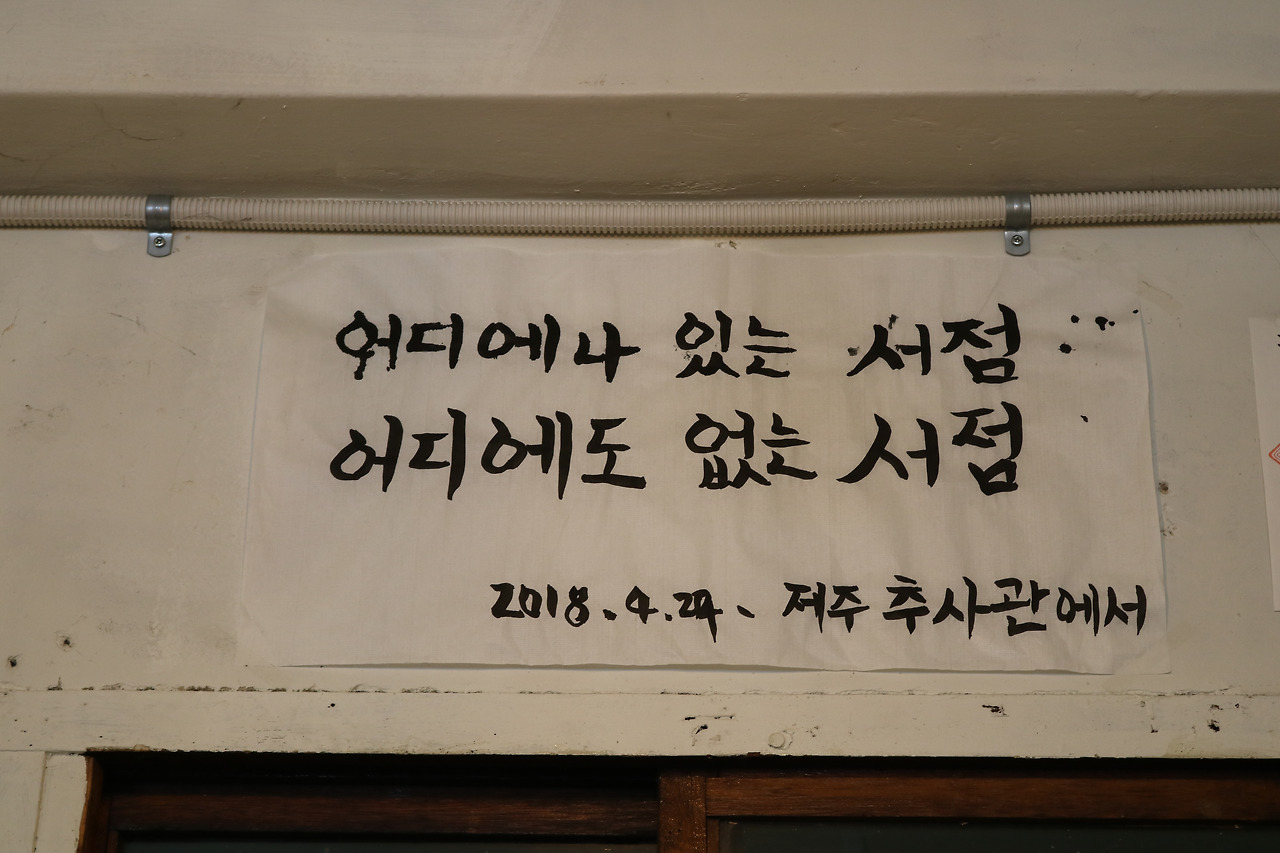 어디에나 있는 서점
어디에도 없는 서점
2018.4.24. 제주 추사관에서